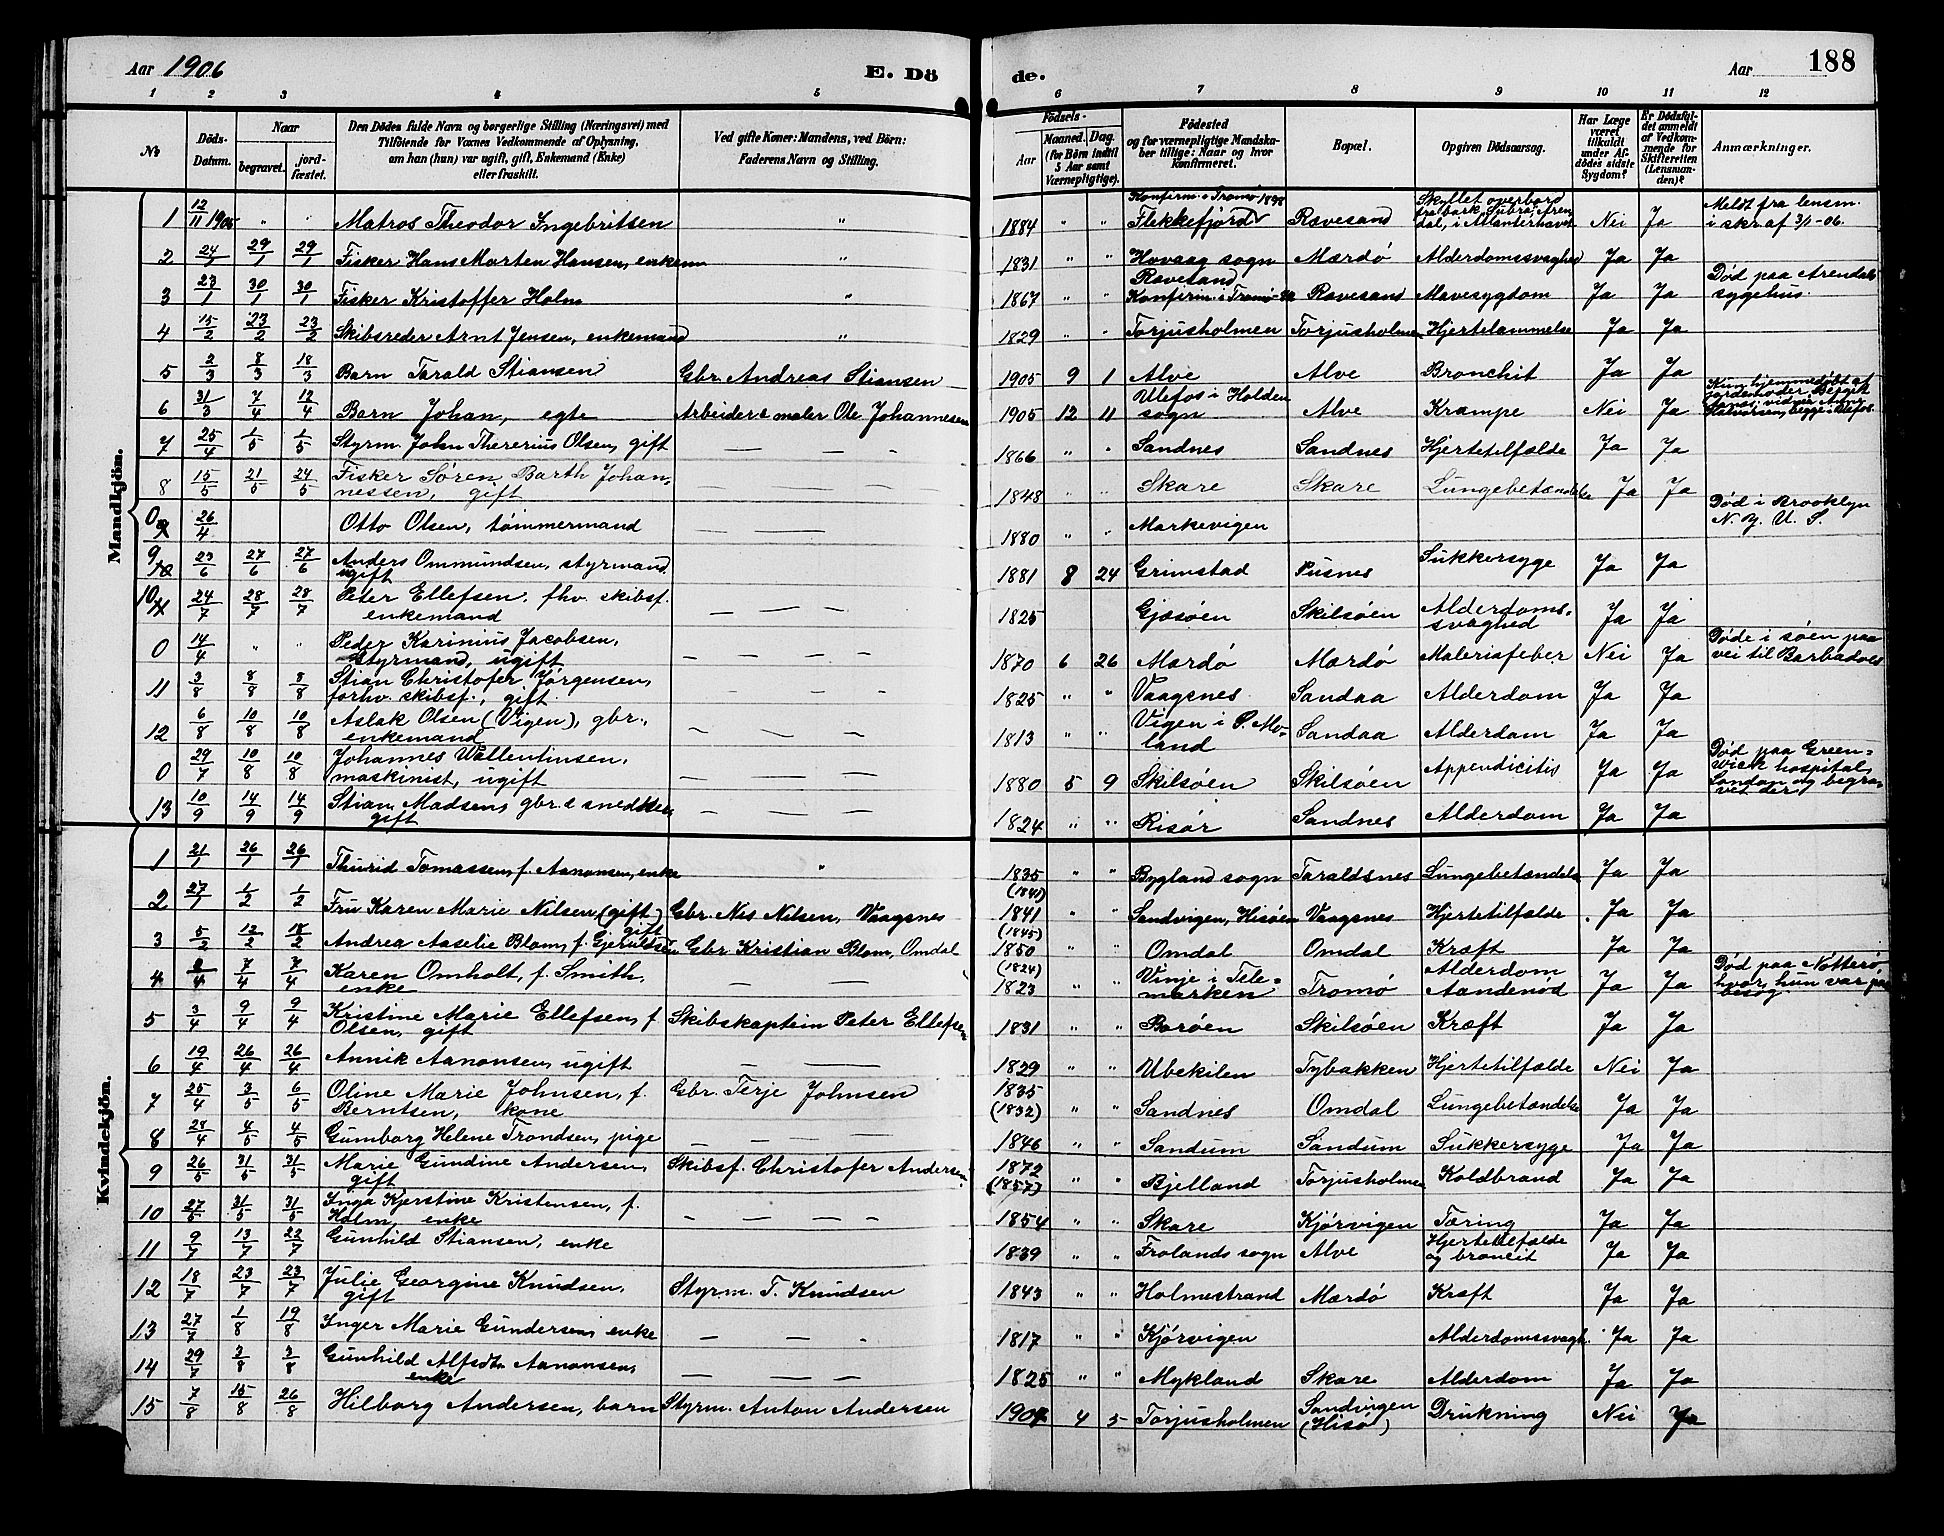 Aar 1906 E. Dö de. Aar 188
1 2 3 4 5 6 7 8 9 10 11 12
No Döds-Datum. Naar begravet. jord-fæstet. Den Dödes fulde Navn og borgerlige Stilling (Næringsvei) med Tilföiende for Voxnes Vedkommende af Oplysning, om han (hun) var ugift, gift, Enkemand (Enke) eller fraskilt. Ved gifte Koner: Mandens, ved Börn: Faderens Navn og Stilling. Födsels- Aar Maaned. Dag. (for Börn indtil 5 Aar samt Værnepligtige). Födested og for værnepligtige Mandska-ber tillige: Naar og hvor konfirmeret. Bopæl. Opgiven Dödsaarsag. Har Læge været tilkaldt under Af-dödes sidste Sygdom? Er Dödsfal-det anmeldt af Vedkom-mende for Skifteretten (Lensman-den)? Anmærkninger.
Mandkjön.
1 12/11 1905 " " Matros Theodor Ingebritsen " 1884 " " Konfirm. i Tromø 1898 Flekkefjord Rævesand Skyllet overbord fra bark Subra, Aren-dal, i Atlanterhavet Nei Ja Meldt fra lensm. i skr. af 3/1-06.
2 24/1 29/1 29/1 Fisker Hans Marten Hansen, enkem " 1831 " " Hovaag sogn Mærdö Alderdomssvaghed Ja Ja
3 23/1 30/1 30/1 Fisker Kristoffer Holm " 1867 " " Rævesand Konfirm. i Tromø Rævesand Mavesygdom Ja Ja Död paa Arendals sygehus.
4 15/2 23/2 23/2 Skibsreder Arnt Jensen, enkemand " 1829 " " Torjusholmen Torjusholmen Hjertelammelse Ja Ja
5 2/3 8/3 18/3 Barn Tarald Stiansen Gbr. Andreas Stiansen 1905 9 1 Alve Alve Bronchit Ja Ja
6 31/3 7/4 12/4 Barn Johan, egte Arbeider & maler Ole Johannesen 1905 12 11 Ulefos i Holden sogn Alve Krampe Nei Ja Kun hjemmedöbt af jordemoder
7 25/4 1/5 1/5 Styrm. John Thererius Olsen, gift — — - 1866 " " Sandnes Sandnes Hjertetilfælde Ja Ja
8 15/5 21/5 24/5 Fisker Søren Barth Johan-nessen, gift — — — 1848 " " Skare Skare Lungebetændelse Ja Ja
0 26/4 Otto Olsen, tömmermand — — — 1880 " " Markevigen Död i Brooklyn N. Y. U. S.
9 23/6 27/6 27/6 Anders Ommundsen, styrmand ugift 1881 8 24 Grimstad Pusnes Sukkersyge Ja Ja
10 24/7 28/7 28/7 Peter Ellefsen, fhv. skibsf. enkemand — — — 1825 Gjesöen Skilsöen Alderdoms-svaghed Ja Ja
0 14/4 " " Peder Karinius Jacobsen, styrmand, ugift — — — 1870 6 26 Mærdö Mærdö Maleriafeber Nei Ja Döde i söen paa vei til Barbadoes
11 3/8 8/8 8/8 Stian Christofer Jørgensen, forhv. skibsf., gift — — — 1825 " " Vaagsnes Sandaa Alderdom Ja Ja
12 6/8 10/8 10/8 Aslak Olsen (Vigen), gbr., enkemand — — — 1813 " " Vigen i Ö. Mo-land Sandaa Alderdam Ja Ja
0 29/7 10/8 10/8 Johannes Wallentinsen, maskinist, ugift — — — 1880 5 9 Skilsöen Skilsöen Appendicitis Ja Ja Död paa Green-wich hospital, London og begra-vet der
13 10/9 14/9 14/9 Stian Madsen, gbr. & snedker gift — — — 1824 " " Risør Sandnes Alderdom Ja Ja
Kvindekjön.
1 21/1 26/1 26/1 Thurid Tomassen, f. Aanonsen, enke " 1835 " " Bygland sogn Taraldsnes Lungebetændelse Ja Ja
2 27/1 1/2 1/2 Fru Karen Marie Nilsen (gift) Gbr. Nes Nilsen, Vaagsnes (1841) 1841 " " Sandvigen, Hisöen Vaagsnes Hjertetilfælde Ja Ja
3 5/2 12/2 18/2 Andrea Aaselie Blom, f. Gjeruldsen gift Gbr. Kristian Blom, Omdal (1845) 1850 " " Omdal Omdal Kræft Ja Ja
4 2/4 7/4 7/4 Karen Omholt, f. Smith, enke — — — (1824) 1823 " " Vinje i Tele-marken Tromö Alderdom Aandenöd Ja Ja Död paa Nötterö, hvor hun var paa besög.
5 3/4 9/4 9/4 Kristine Marie Ellefsen, f. Olsen, gift Skibskaptein Peter Ellefsen 1831 " " Boröen Skilsöen Kræft Ja Ja
6 19/4 26/4 26/4 Annik Aanonsen, ugift — — 1829 " " Ubekilen Tybakken Hjertetilfælde Nei Ja
7 25/4 3/5 6/5 Oline Marie Johnsen, f. Berntsen, kone Gbr. Terje Johnsen 1835 (1832) " " Sandnes Omdal Lungebetændelse Ja Ja
8 28/4 4/5 4/5 Gumborg Helene Trondsen, pige — — — 1846 " " Sandum Sandum Sukkersyge Ja Ja
9 26/5 31/5 31/5 Marie Gundine Andersen, gift Skibsf. Christofer Andersen 1872 (1857) " " Bjelland Torjusholmen Koldbrand Ja Ja
10 27/5 31/5 31/5 Inga Kjerstine Kristensen, f. Holm, enke — — — 1854 " " Skare Kjörvigen Tæring Ja Ja
11 9/7 13/7 22/7 Gunhild Stiansen, enke 1839 " " Frolands sogn Alve Hjertetilfælde og broncit Ja Ja
12 18/7 23/7 23/7 Julie Georgine Knudsen, gift Styrm. T. Knudsen 1843 " " Holmestrand Mærdö Kræft Ja Ja
13 27/7 1/8 19/8 Inger Marie Gundersen, enke — — 1817 " " Kjörvigen Alderdomssvagh. Ja Ja
14 29/7 3/8 3/8 Gunhild Alfsdtr Aanonsen, enke — — — 1825 " " Mykland Skare Alderdom Ja Ja
15 7/8 15/8 26/8 Hilborg Andersen, barn Styrm. Anton Andersen 1904 4 5 Torjusholmen Sandvigen (Hisö) Drukning Nei Ja